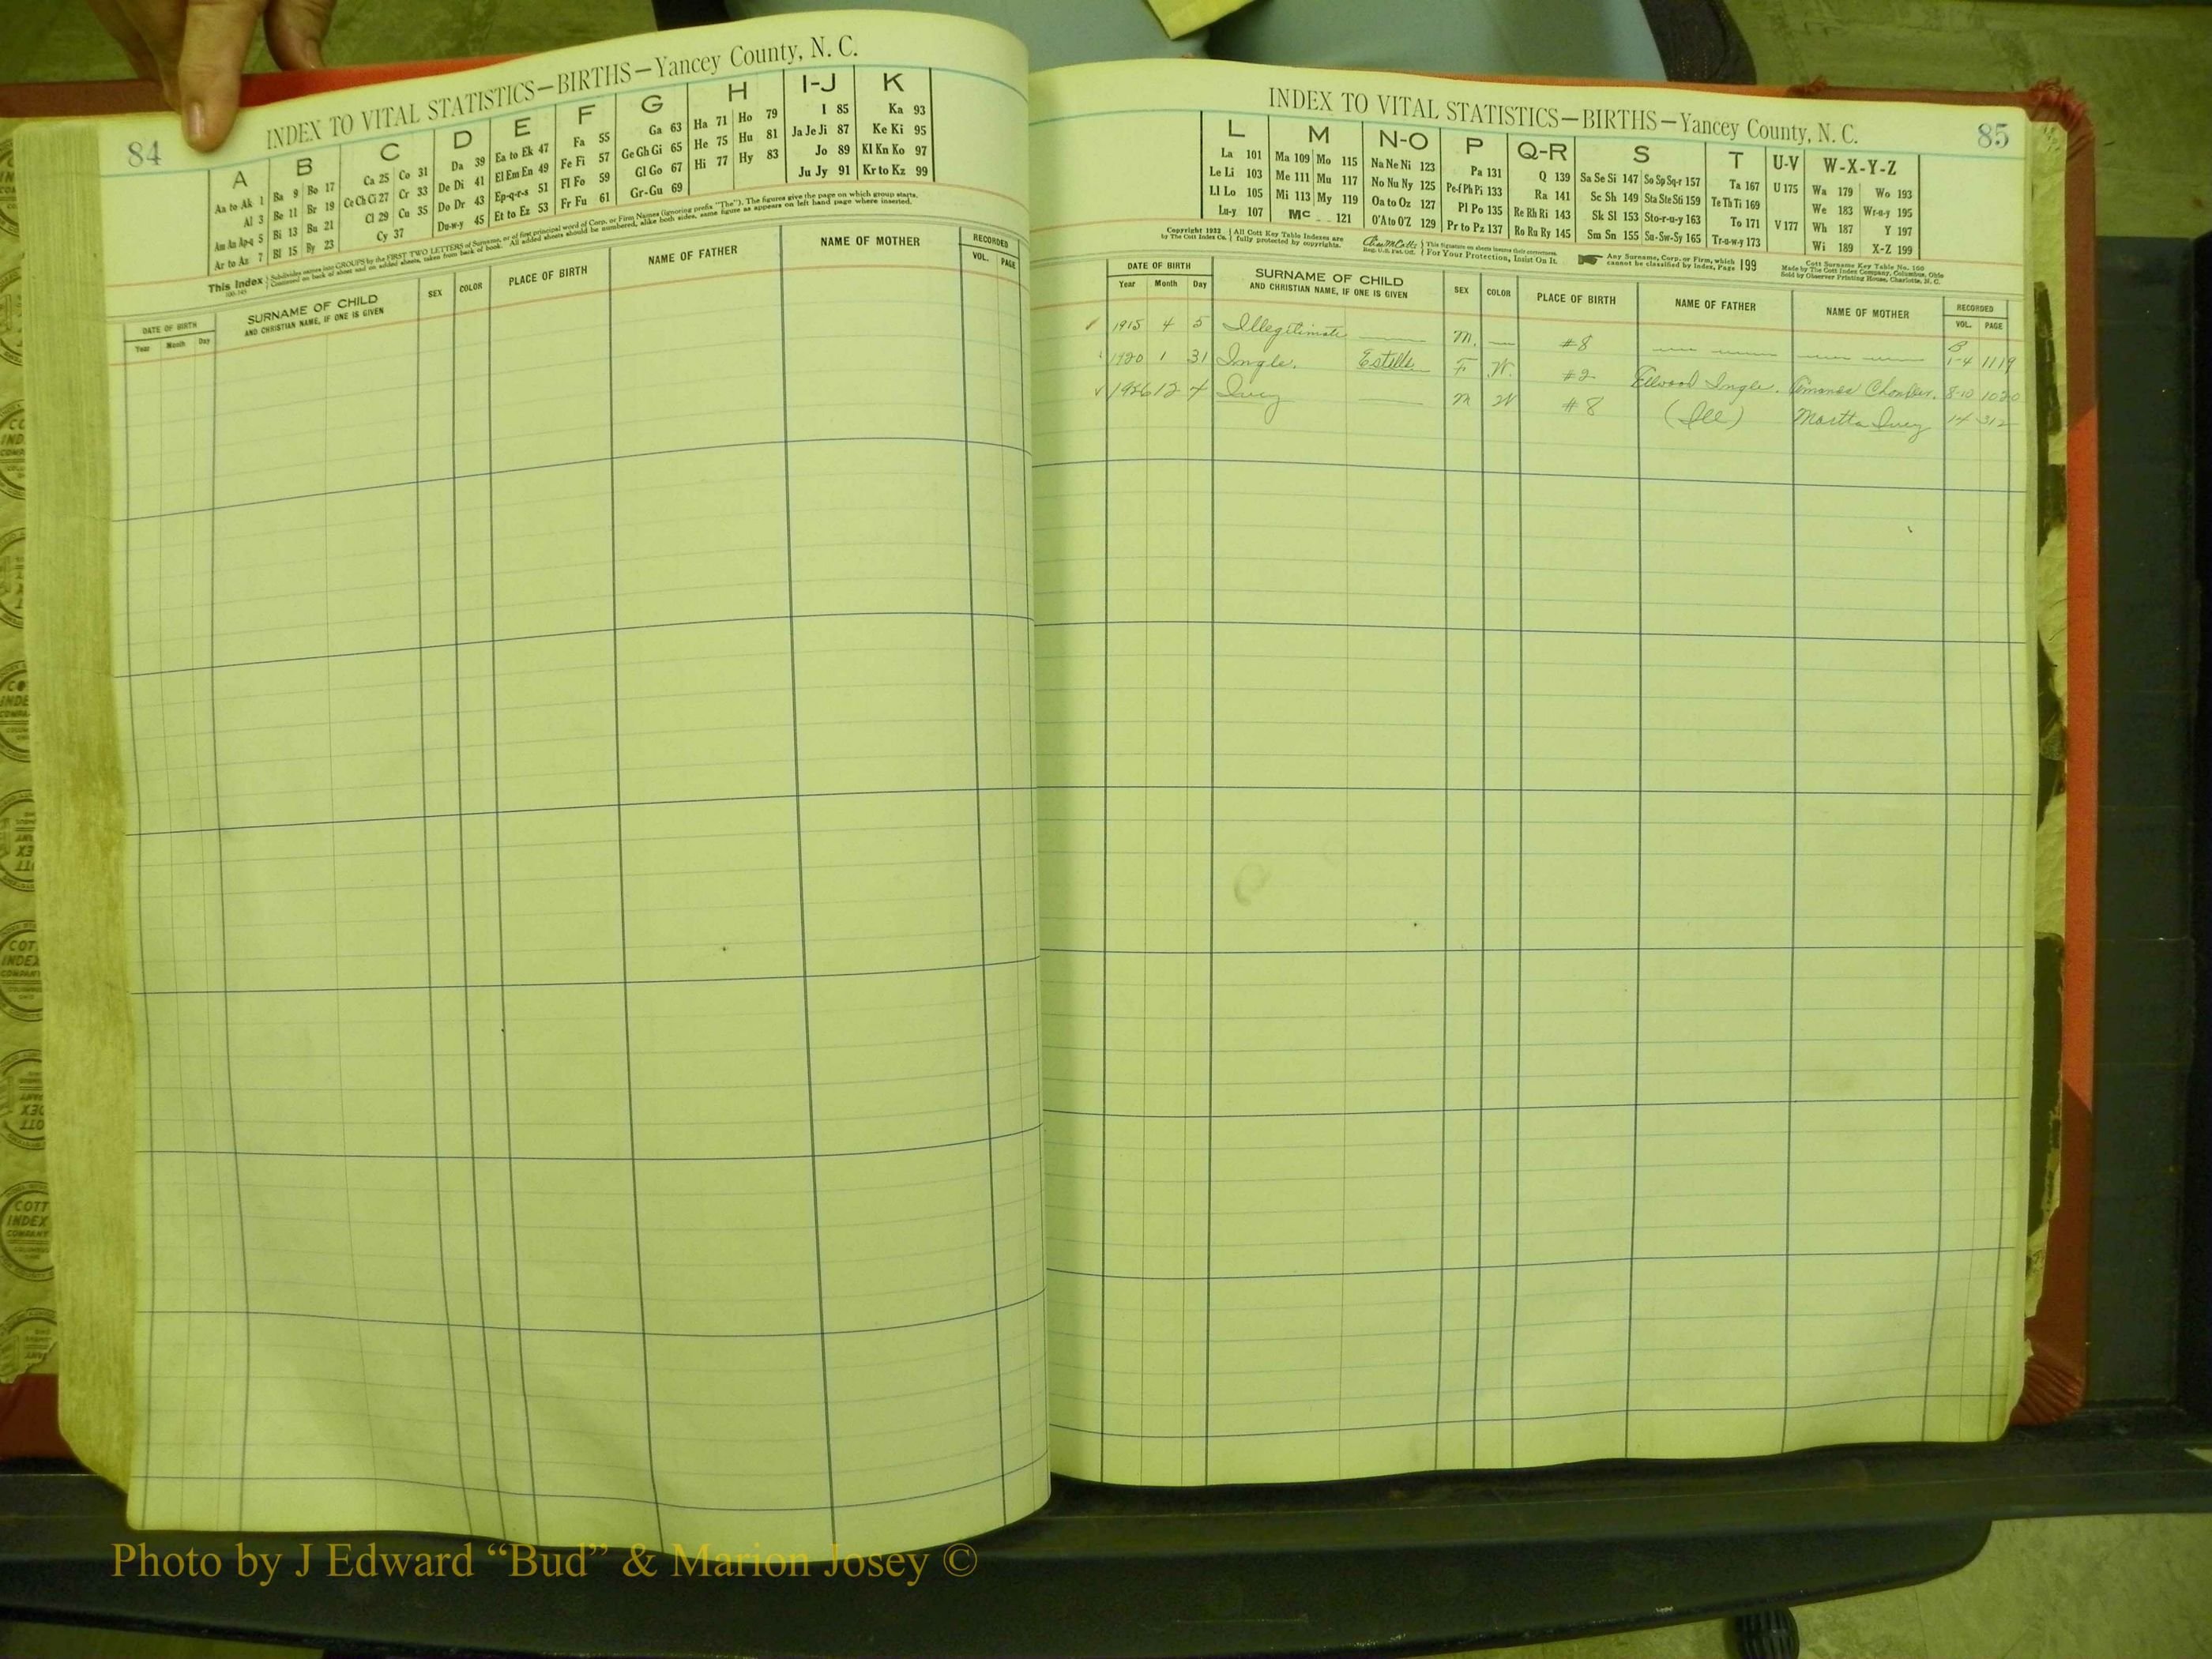 84
INDEX TO VITAL STATISTICS—BIRTHS—Yancey County, N. C.
A B C D E F G H I-J K
Aa to Ak 1 Ba 9 Bo 17 Ca 25 Co 31 Da 39 Ea to Ek 47 Fa 55 Ga 63 Ha 71 Ho 79 I 85 Ka 93
Al 3 Be 11 Br 19 Ce Ch Ci 27 Cr 33 De Di 41 El Em En 49 Fe Fi 57 Ge Gh Gi 65 He 75 Hu 81 Ja Je Ji 87 Ke Ki 95
Am An Ap-q 5 Bi 13 Bu 21 Cl 29 Cu 35 Do Dr 43 Ep-q-r-s 51 Fl Fo 59 Gl Go 67 Hi 77 Hy 83 Jo 89 Kl Kn Ko 97
Ar to Az 7 Bl 15 By 23 Cy 37 Du-w-y 45 Et to Ez 53 Fr Fu 61 Gr-Gu 69 Ju Jy 91 Kr to Kz 99
This Index Subdivides names into GROUPS by the FIRST TWO LETTERS of Surname, or of first principal word of Corp. or Firm Names (ignoring prefix "The"). The figures give the page on which group starts.
Continued on back of sheet and on added sheets, taken from back of book. All added sheets should be numbered, alike both sides, same figure as appears on left hand page where inserted.
DATE OF BIRTH SURNAME OF CHILD SEX COLOR PLACE OF BIRTH NAME OF FATHER NAME OF MOTHER RECORDED
Year Month Day AND CHRISTIAN NAME, IF ONE IS GIVEN VOL. PAGE
INDEX TO VITAL STATISTICS—BIRTHS—Yancey County, N. C.
85
L M N-O P Q-R S T U-V W-X-Y-Z
La 101 Ma 109 Mo 115 Na Ne Ni 123 Pa 131 Q 139 Sa Se Si 147 So Sp Sq-r 157 Ta 167 U 175 Wa 179 Wo 193
Le Li 103 Me 111 Mu 117 No Nu Ny 125 Pe-f Ph Pi 133 Ra 141 Sc Sh 149 Sta Ste Sti 159 Te Th Ti 169 We 183 Wr-u-y 195
Ll Lo 105 Mi 113 My 119 Oa to Oz 127 Pl Po 135 Re Rh Ri 143 Sk Sl 153 Sto-r-u-y 163 To 171 V 177 Wh 187 Y 197
Lu-y 107 Mc 121 O'A to O'Z 129 Pr to Pz 137 Ro Ru Ry 145 Sm Sn 155 Su-Sw-Sy 165 Tr-u-w-y 173 Wi 189 X-Z 199
Copyright 1932 by The Cott Index Co. All Cott Key Table Indexes are fully protected by copyrights. Reg. U.S. Pat. Off. This Signature on sheets insures their correctness. For Your Protection, Insist On It. Any Surname, Corp. or Firm, which cannot be classified by Index, Page 199
Cott Surname Key Table No. 100
Made by The Cott Index Company, Columbus, Ohio
Sold by Observer Printing House, Charlotte, N. C.
DATE OF BIRTH SURNAME OF CHILD SEX COLOR PLACE OF BIRTH NAME OF FATHER NAME OF MOTHER RECORDED
Year Month Day AND CHRISTIAN NAME, IF ONE IS GIVEN VOL. PAGE
1915 4 5 Illegitimate M. #8 B 1-4 1119
1920 1 31 Ingle. Estelle F W. #2 Elwood Ingle. 8-10 1020
1926 12 4 Ivey M W #8 (Ill) Martha Ivey 14 312
Photo by J Edward “Bud” & Marion Josey ©